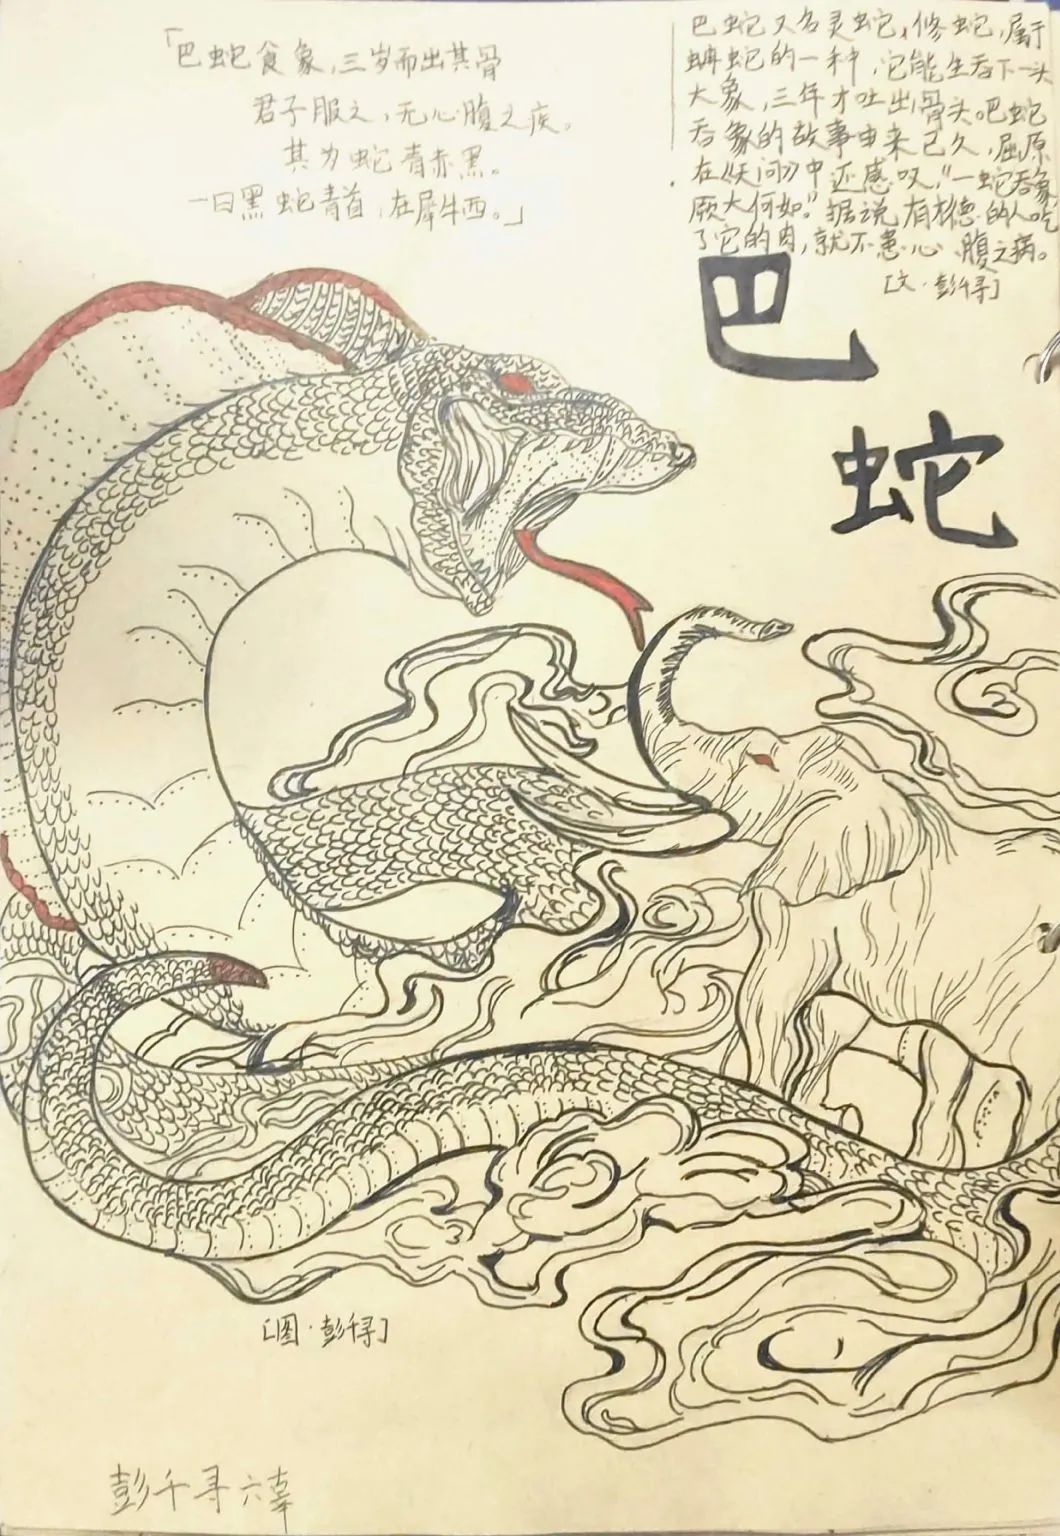 「巴蛇食象,三岁而出其骨
君子服之,无心腹之疾。
其为蛇青赤黑。
一曰黑蛇青首,在犀牛西。」
巴蛇又名灵蛇,修蛇,属于
蚺蛇的一种,它能生吞下一头
大象,三年才吐出骨头。巴蛇
吞象的故事由来已久,屈原
在《天问》中还感叹,"一蛇吞象
厥大何如。"据说有才德的人吃
了它的肉,就不患心、腹之病。
[文·彭千寻]
巴
蛇
[图·彭千寻]
彭千寻 六